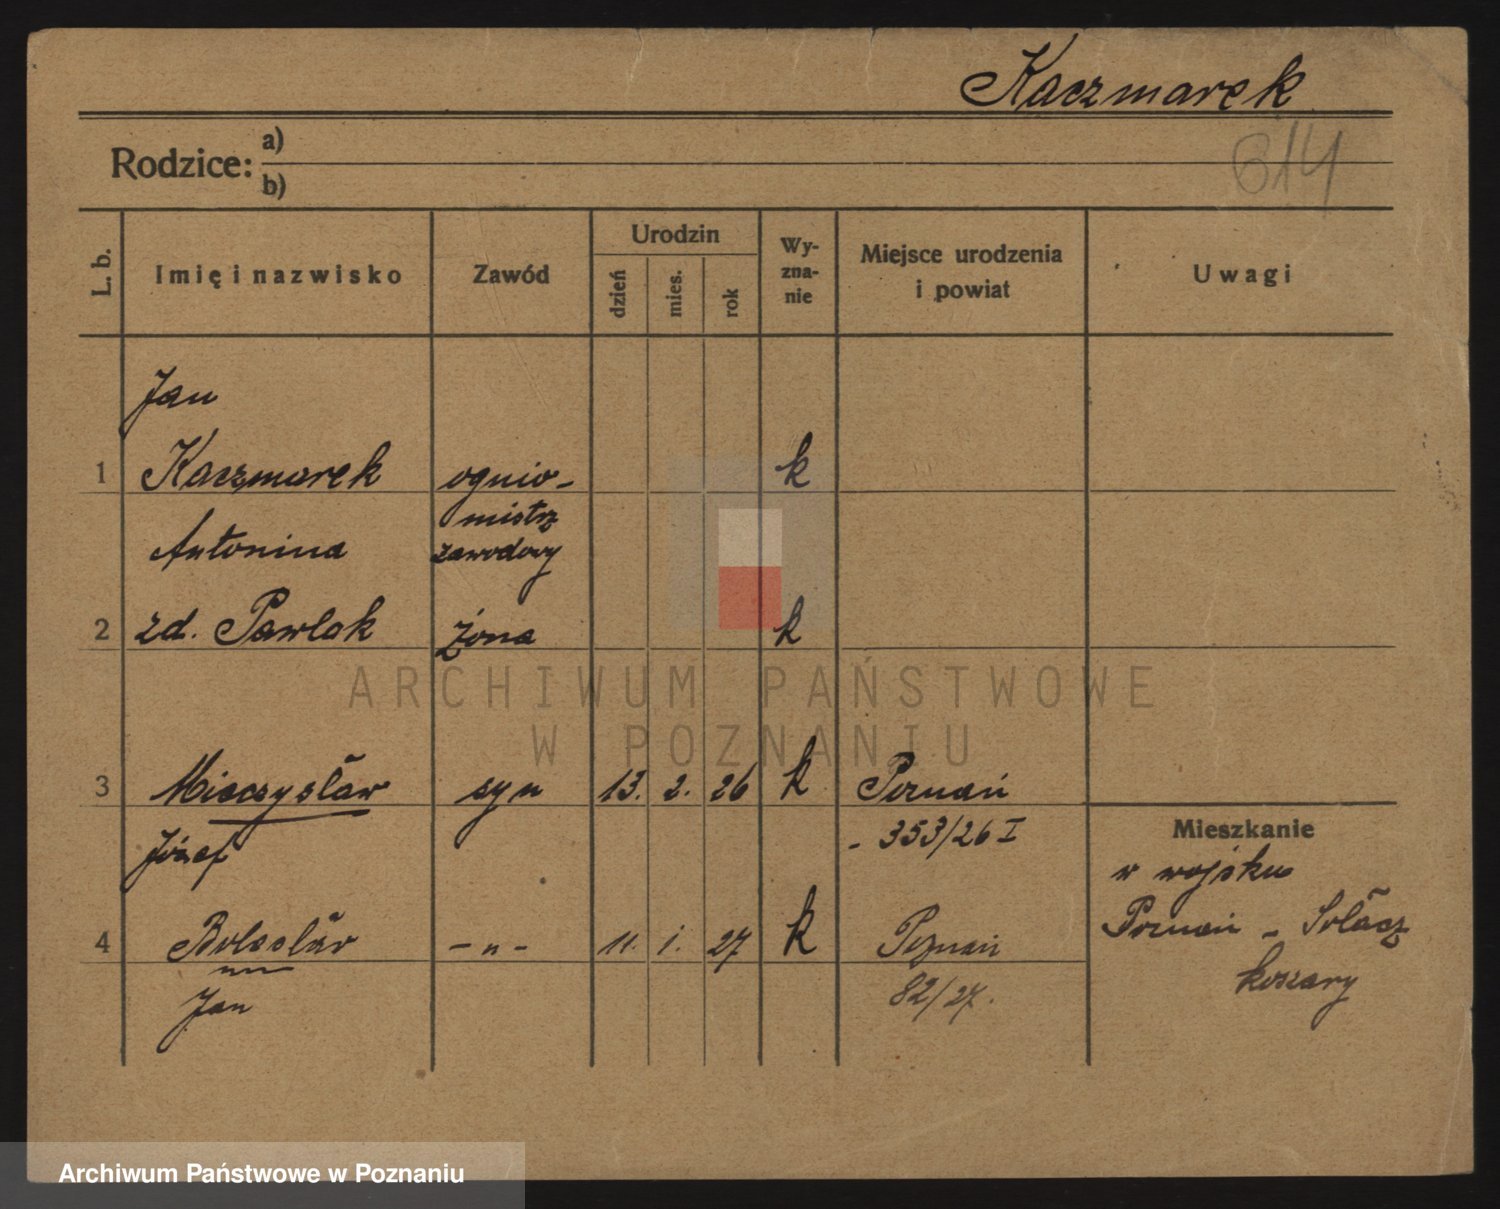 Kaczmarek
614
Rodzice: a)
b)
L. b.
Imię i nazwisko
Zawód
Urodzin
dzień
mies.
rok
Wy-
zna-
nie
Miejsce urodzenia
i powiat
Uwagi
Jan
1 Kaczmarek ognio- k
mistrz
Antonina zawodowy
2 zd. Pawlak żona k
ARCHIWUM PAŃSTWOWE
W POZNANIU
3 Mieczysław syn 13. 2. 26 k Poznań
Józef - 353/26 I
4 Bolesław - " - 11. 1. 27 k Poznań
Jan 82/27.
Mieszkanie
w wojsku
Poznań - Sołacz
koszary
Archiwum Państwowe w Poznaniu